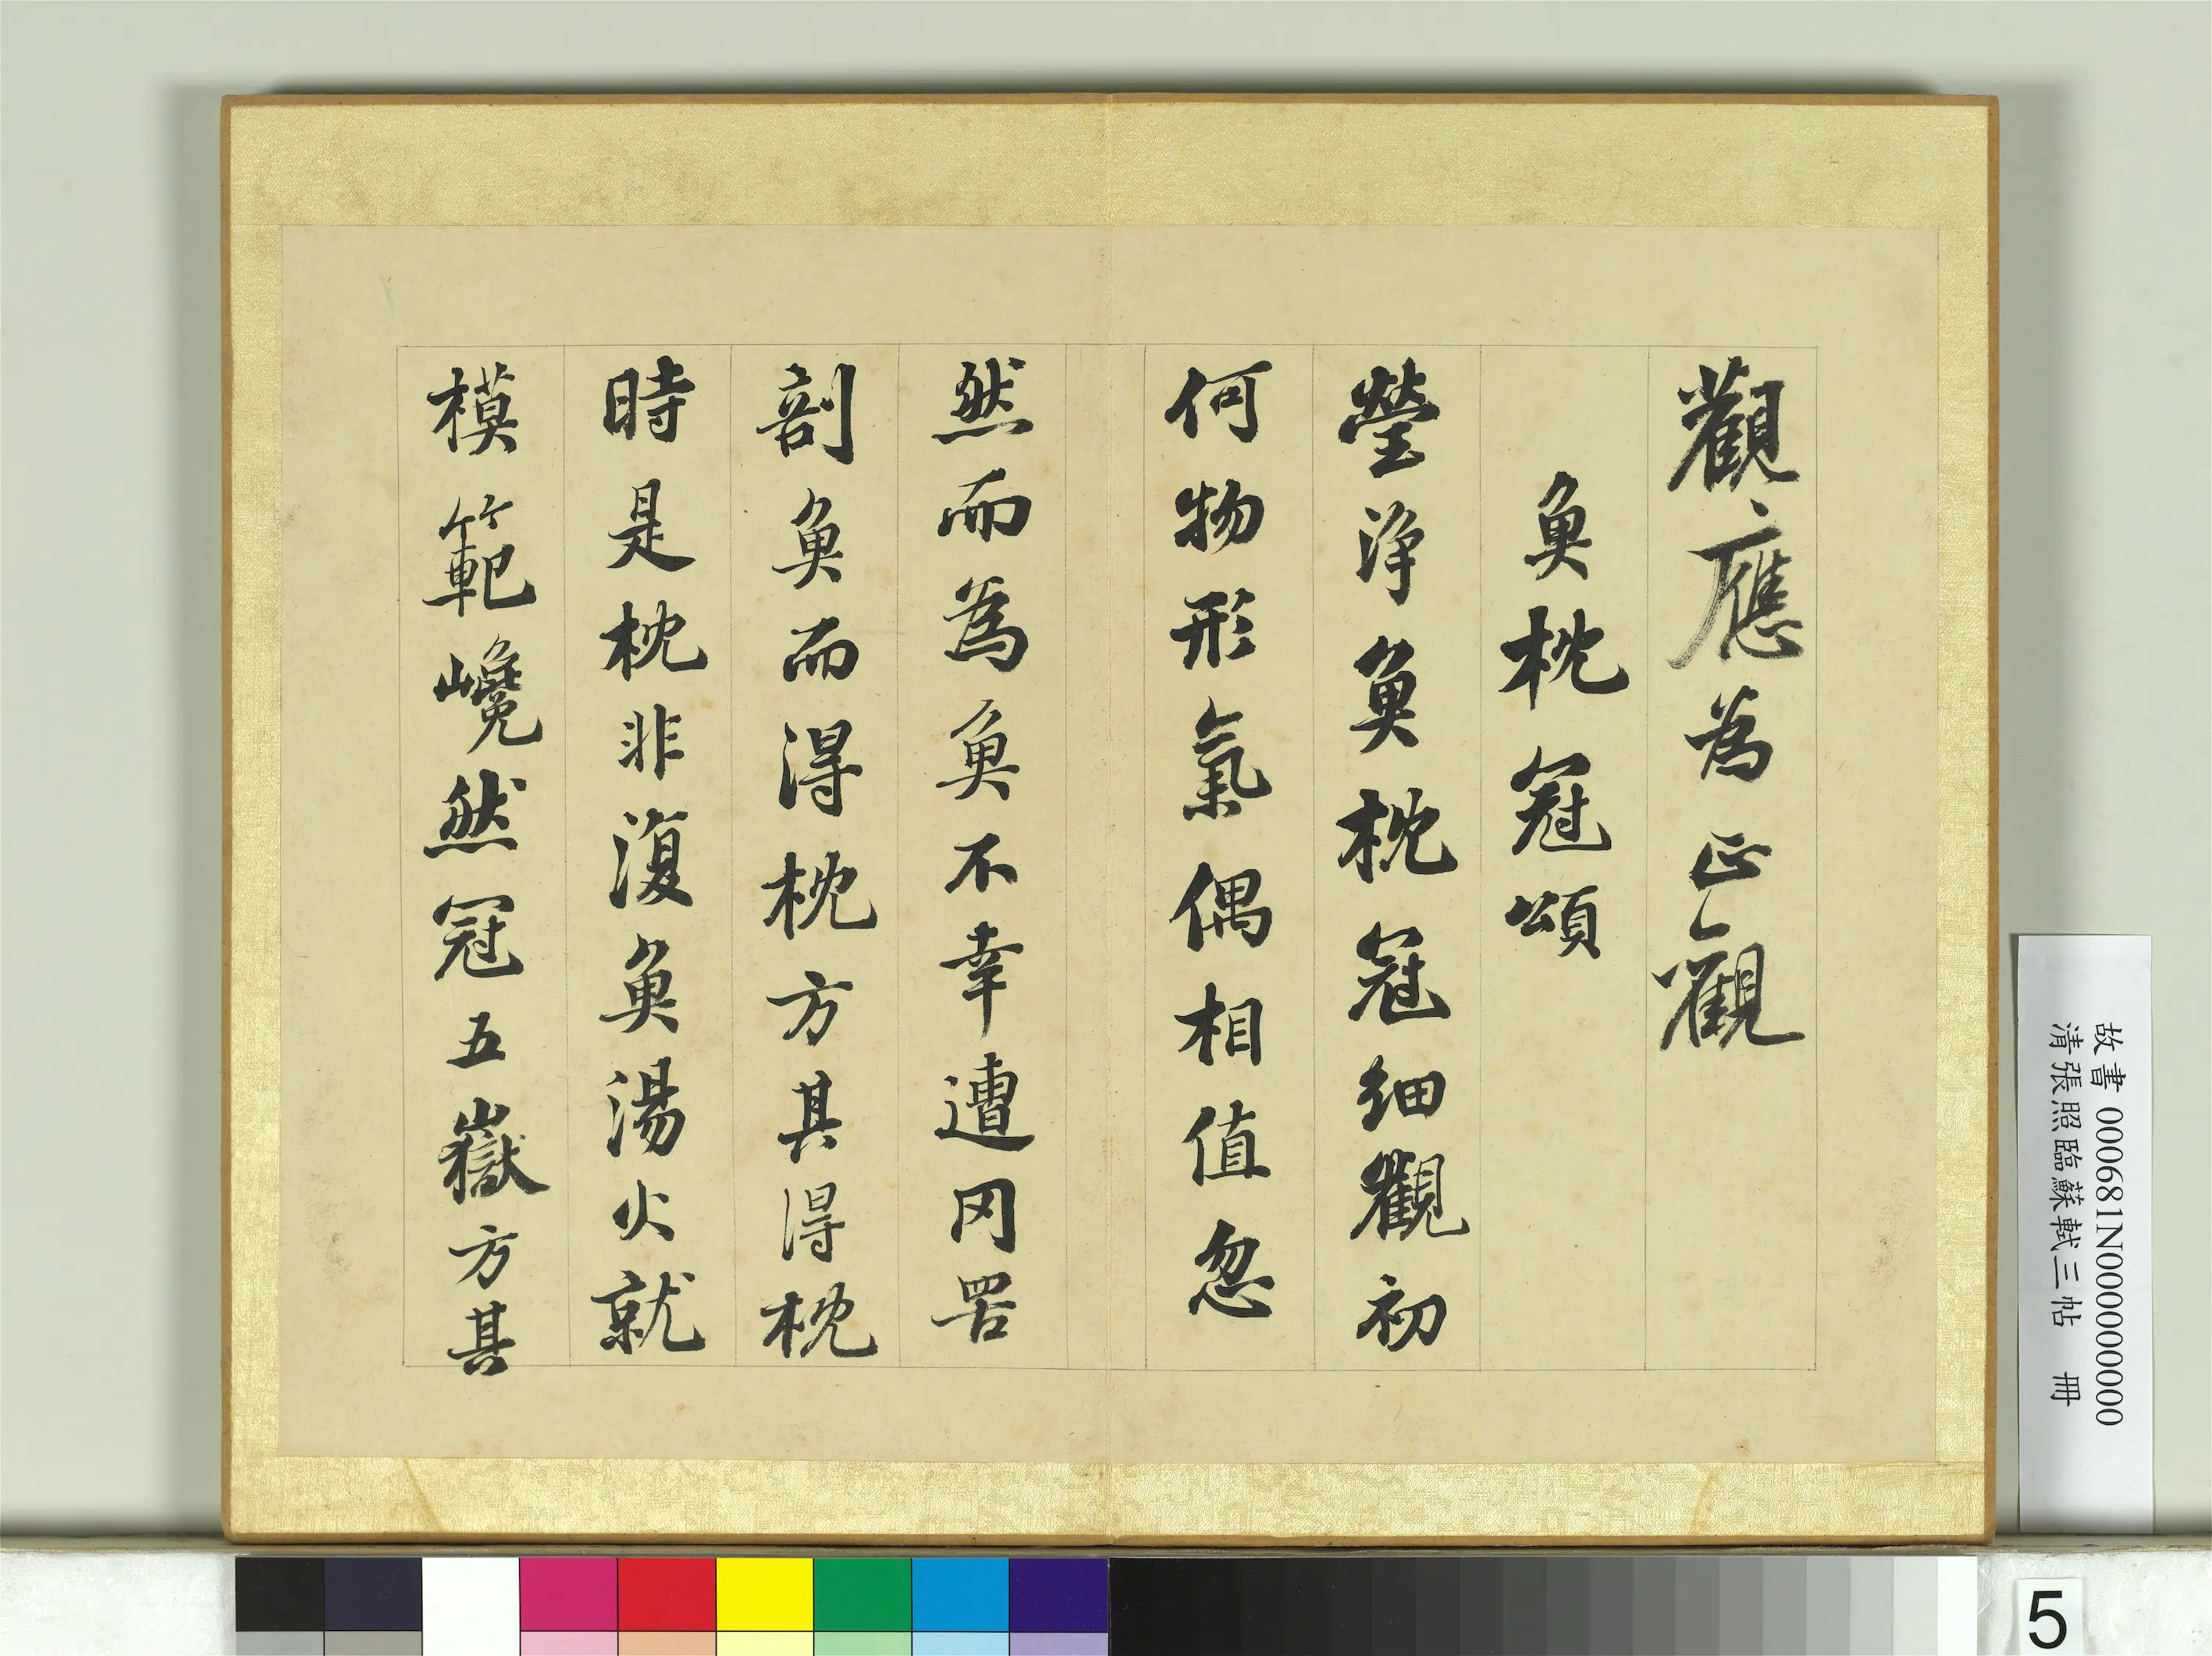 觀應為正觀
魚枕冠頌
瑩淨魚枕冠細觀初
何物形氣偶相值忽
然而為魚不幸遭罔罟
剖魚而得枕方其得枕
時是枕非復魚湯火就
模範巉然冠五嶽方其
故書 000681N000000000
清張照臨蘇軾三帖 冊
5